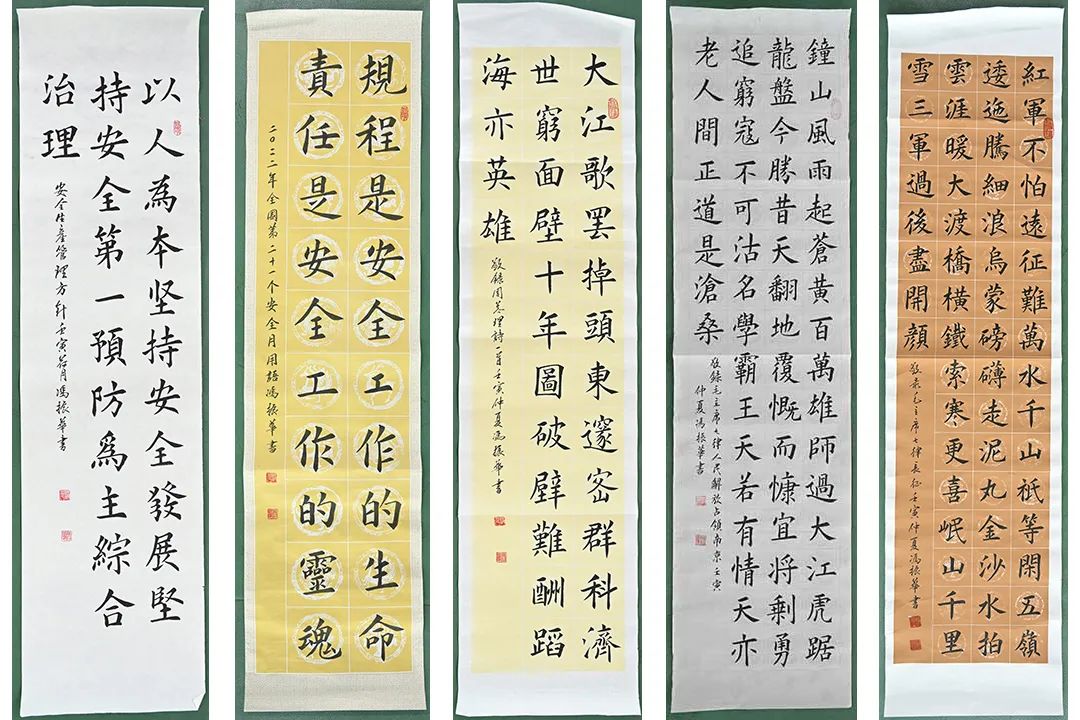 以人為本坚持安全發展堅
持安全第一預防爲主綜合
治理
安全生產管理方针壬寅荷月馮振華書
規程是安全工作的生命
責任是安全工作的靈魂
二〇二二年全國第二十一个安全月用語馮振華書
大江歌罢掉頭東邃密群科濟
世窮面壁十年圖破壁難酬蹈
海亦英雄
敬録周总理詩一首壬寅仲夏馮振華書
鐘山風雨起蒼黄百萬雄師過大江虎踞
龍盤今勝昔天翻地覆慨而慷宜将剩勇
追窮寇不可沽名學霸王天若有情天亦
老人間正道是滄桑
敬録毛主席七律人民解放占領南京壬寅
仲夏馮振華書
紅軍不怕遠征難萬水千山祇等閑五嶺
逶迤騰細浪烏蒙磅礴走泥丸金沙水拍
雲涯暖大渡橋橫鐵索寒更喜岷山千里
雪三軍過後盡開顔
敬录毛主席七律長征壬寅仲夏馮振華書